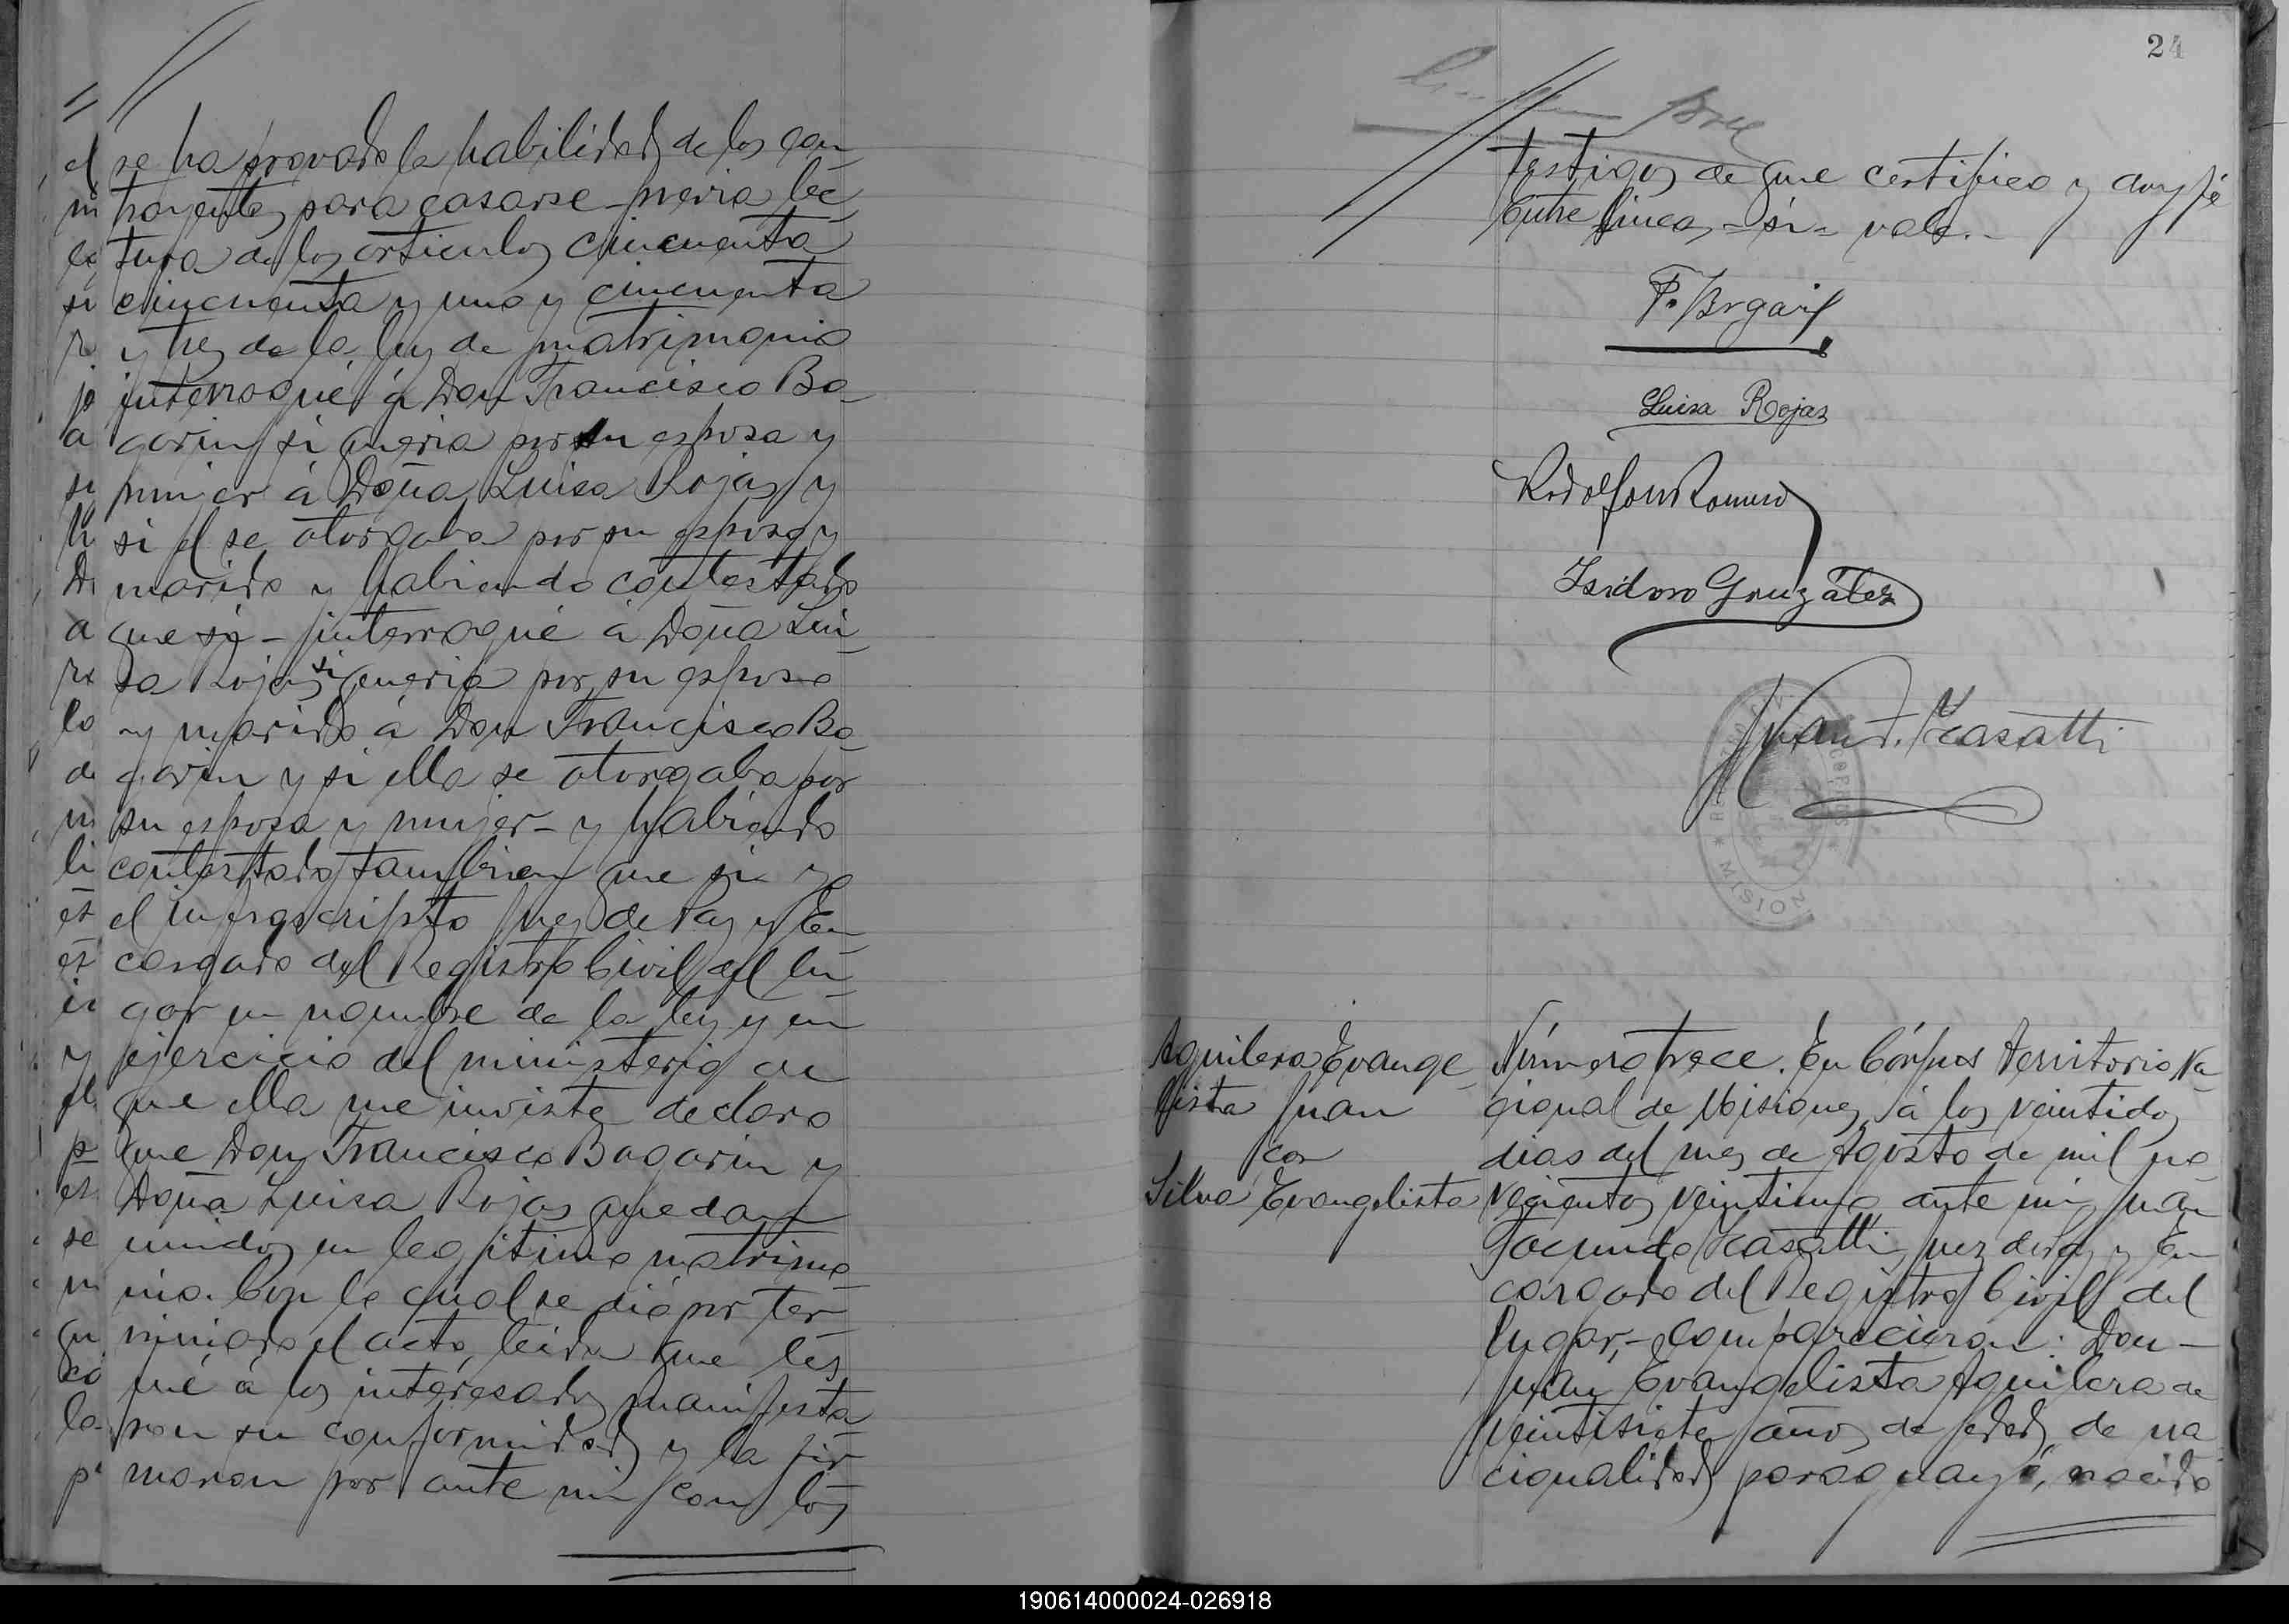 se ha provado la habilidad de los con
trayentes para casarse previa lec
tura de los articulos cincuenta
cincuenta y uno y cincuenta
y tres de la ley de matrimonio
interrogué á Don Francisco Ba-
garin si queria por su esposa y
mujer á Doña Luisa Rojas y
si el se otorgaba por su esposo y
marido y habiendo contestado
que si - interrogué á Doña Lui
sa Rojas si queria por su esposo
y marido á Don Francisco Ba-
garin y si ella se otorgaba por
su esposa y mujer - y habiendo
contestado tambien que si yo
el infrascripto Juez de Paz y En
cargado del Registro Civil del lu
gar en nombre de la ley y en
ejercicio del ministerio de
que ella me inviste declaro
que Don Francisco Bagarin y
Doña Luisa Rojas quedan
unidos en legitimo matrimo-
nio. Con lo cual se dió por ter
minado el acto, leida que les
fué á los interesados manifesta
ron su conformidad y la fir
maron por ante mi con los
24
testigos de que certifico y doy fé
Entre lineas - si - vale. -
F. Bagarin
Luisa Rojas
Rodolfo Romero
Isidoro González
Juan F. Casatti
MISION
Aguilera Evange
lista Juan
con
Silva Evangelista
Número trece. En Córpus Territorio Na
cional de Misiones, á los veintidos
dias del mes de Agosto de mil no
vecientos veintiuno, ante mi, Juan
Facundo Casatti, Juez de Paz y En
cargado del Registro Civil del
lugar, - comparecieron: Don -
Juan Evangelista Aguilera de
veintisiete años de edad, de na
cionalidad paraguayo, nacido
190614000024-026918